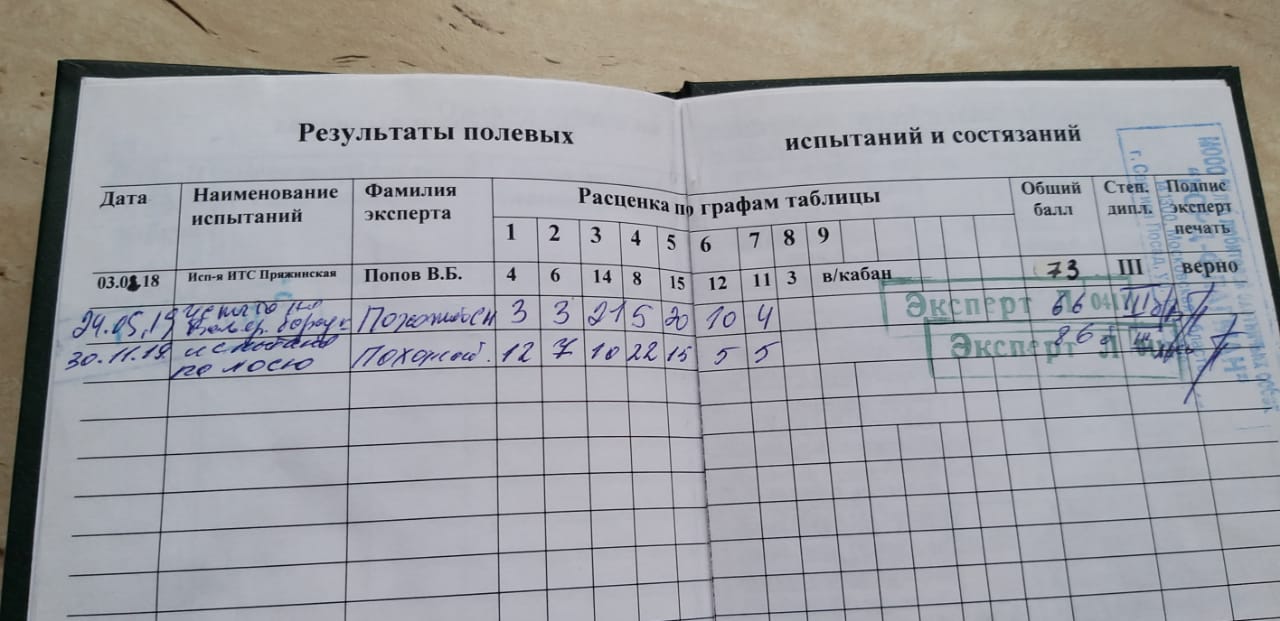 Результаты полевых испытаний и состязаний
Дата Наименование испытаний Фамилия эксперта Расценка по графам таблицы Обший балл Степ. дипл. Подпис эксперт печать
1 2 3 4 5 6 7 8 9
03.0 .18 Исп-я ИТС Пряжинская Попов В.Б. 4 6 14 8 15 12 11 3 в/кабан 73 III верно
24.05.19 3 3 21 5 20 10 4 66 III
30.11.19 испытания по лосю 12 7 10 22 15 5 5 86
Эксперт Л
Эксперт Л